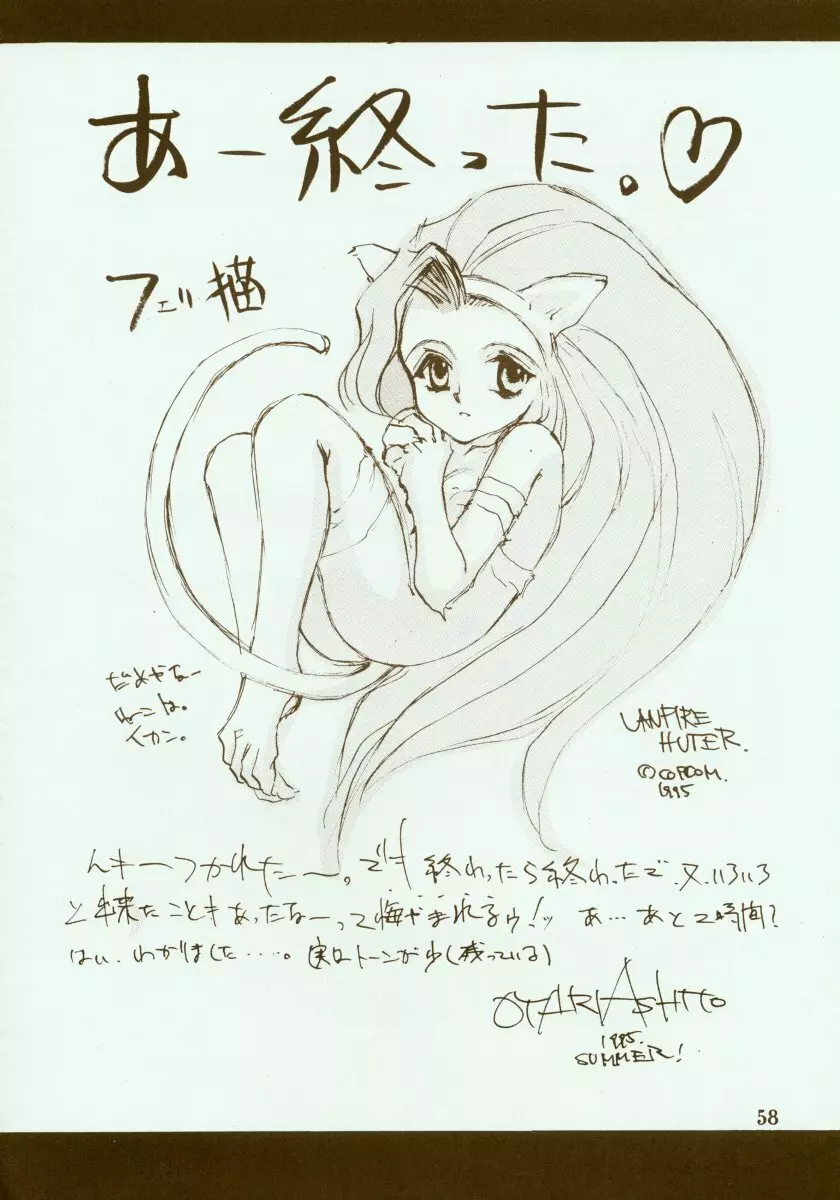 あー終った。♡
フェリ猫
だめやなー
ねこは。
イカン。
VANPIRE
HUTER.
©CAPCOM.
1995
んキーつかれたー。でも終わったら終わったで、又、いろいろ
と出来たこともあったなーって悔やまれるゥ!ッ あ…あと2時間?
はい、わかりました……。実はトーンが少(残っている)
OTARIASHITO
1995.
SUMMER!
58